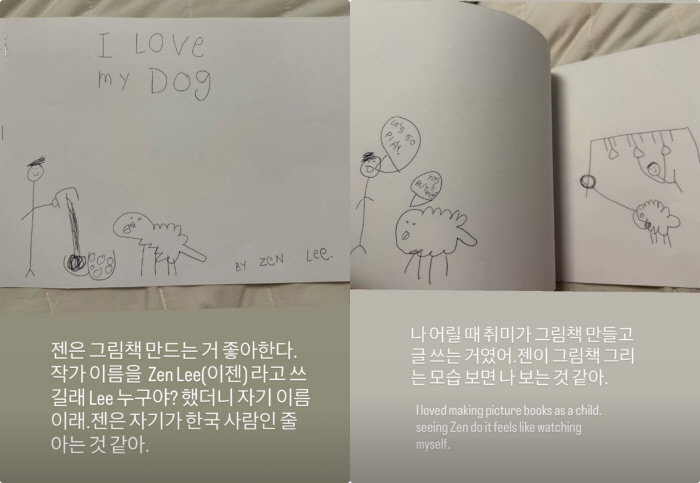 I LOVE
my DOG
BY ZEN LEE.
젠은 그림책 만드는 거 좋아한다.
작가 이름을 Zen Lee(이젠) 라고 쓰
길래 Lee 누구야? 했더니 자기 이름
이래.젠은 자기가 한국 사람인 줄
아는 것 같아.
Le's GO
PlAY.
나 어릴 때 취미가 그림책 만들고
글 쓰는 거였어.젠이 그림책 그리
는 모습 보면 나 보는 것 같아.
I loved making picture books as a child.
seeing Zen do it feels like watching
myself.